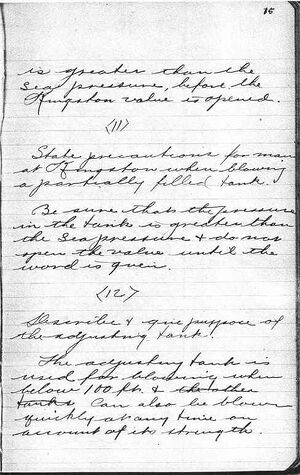 15
is greater than the
sea pressure, before the
Kingston valve is opened.
<11>
State precautions for man
at Kingston when blowing
a partially filled tank.
Be sure that the pressure
in the tank is greater than
the sea pressure & do not
open the valve until the
word is given.
<12>
Describe & give purpose of
the adjusting tank.
The adjusting tank is
used for blowing when
below 100 ft. & the other
tanks Can also be blown
quickly at any time on
account of its strength.